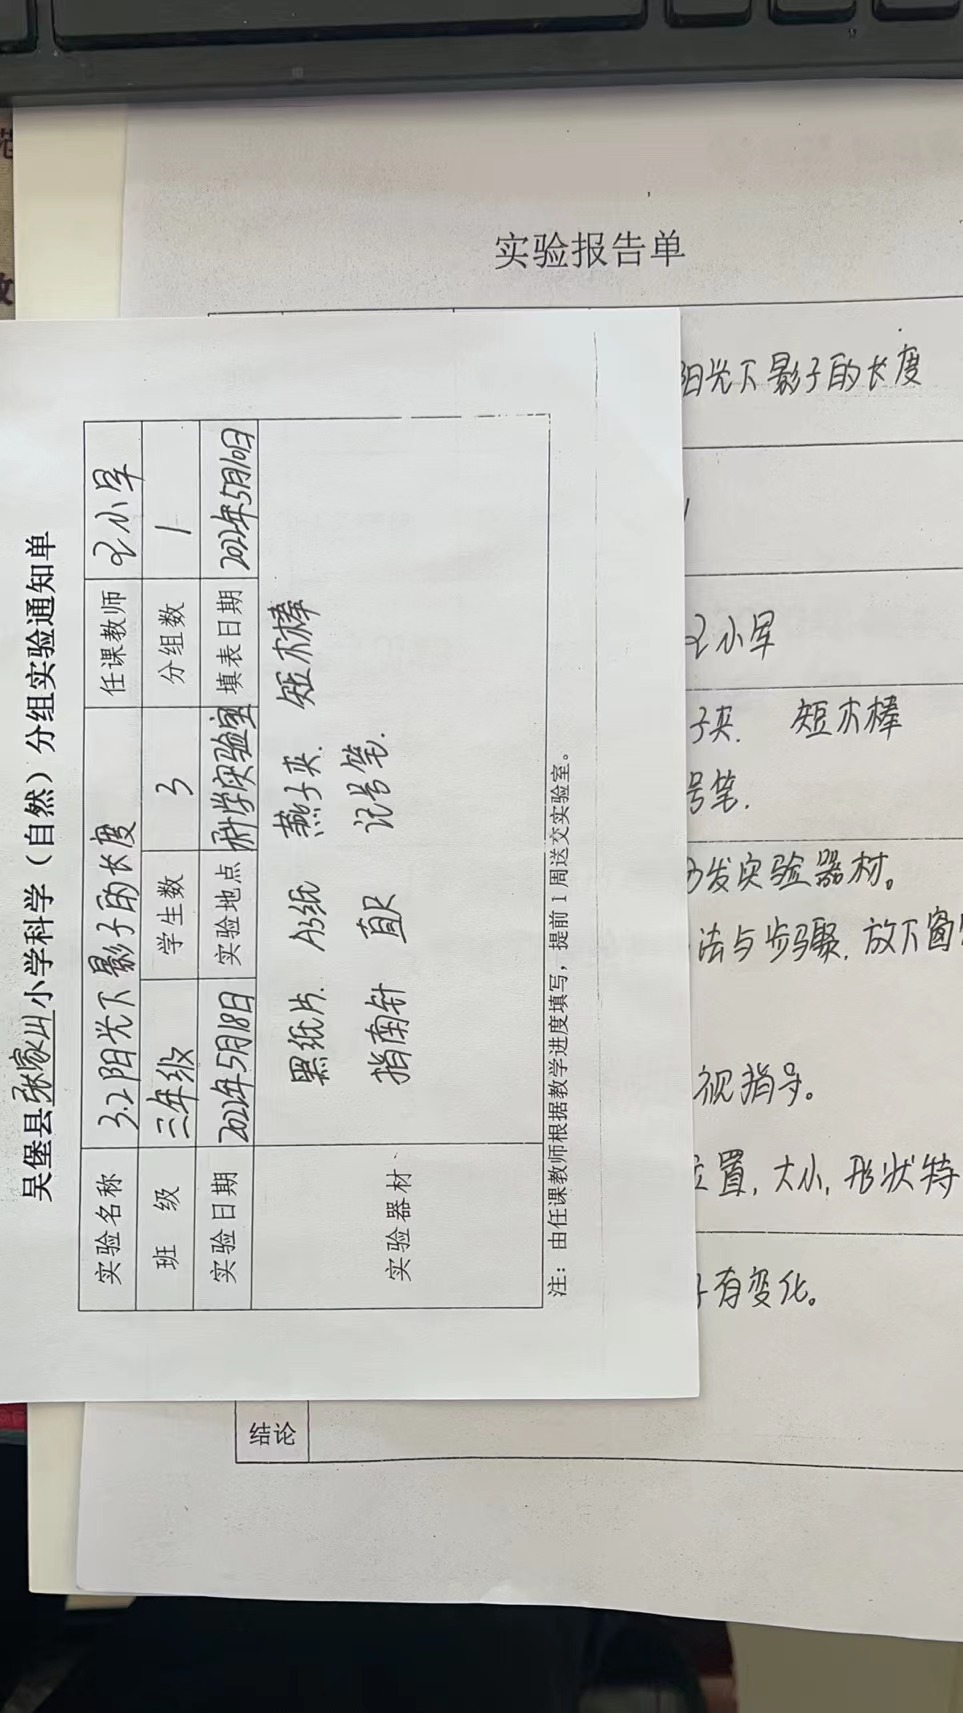 吴堡县张家山小学科学（自然）分组实验通知单
实验名称 3.2阳光下影子的长度 任课教师 王小军
班 级 三年级 学生数 3 分组数 1
实验日期 2022年5月18日 实验地点 科学实验室 填表日期 2022年5月10日
实验器材 黑纸片. A3纸 燕子夹. 短木棒
指南针 直尺 记号笔.
注：由任课教师根据教学进度填写，提前1周送交实验室。
实验报告单
阳光下影子的长度
小军
子夹. 短木棒
号笔.
发实验器材。
法与步骤. 放下窗
视指导。
位置, 大小, 形状特
子有变化。
结论